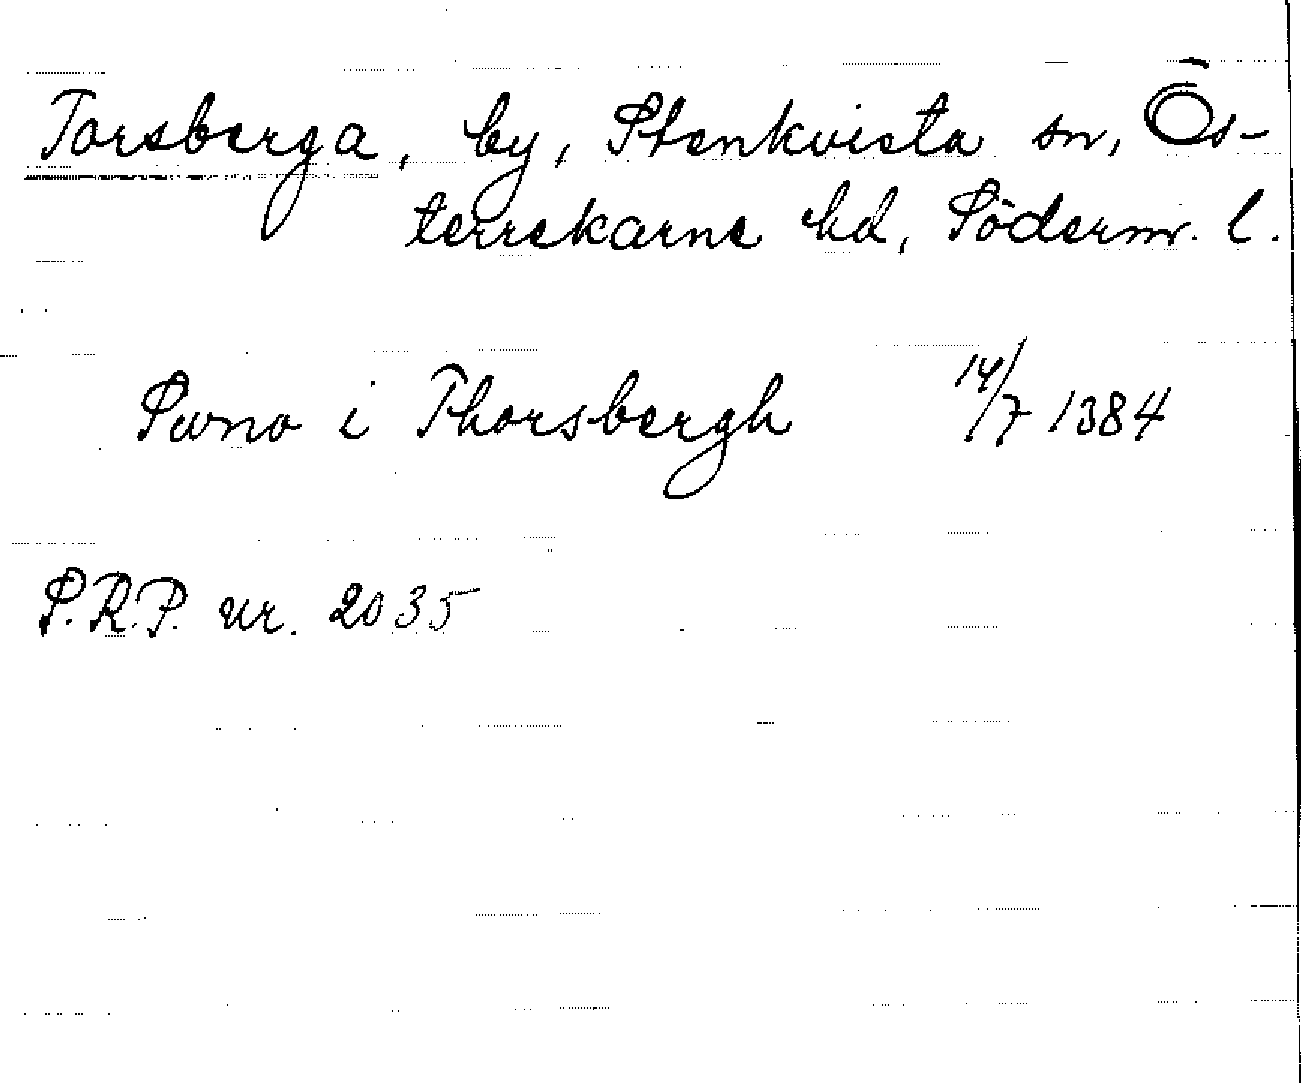 Torsberga, by, Stenkvista sn, Ös-
terrekarne hd, Söderm. l.
Swno i Thorsbergh 14/7 1384
S.R.P. nr. 2035